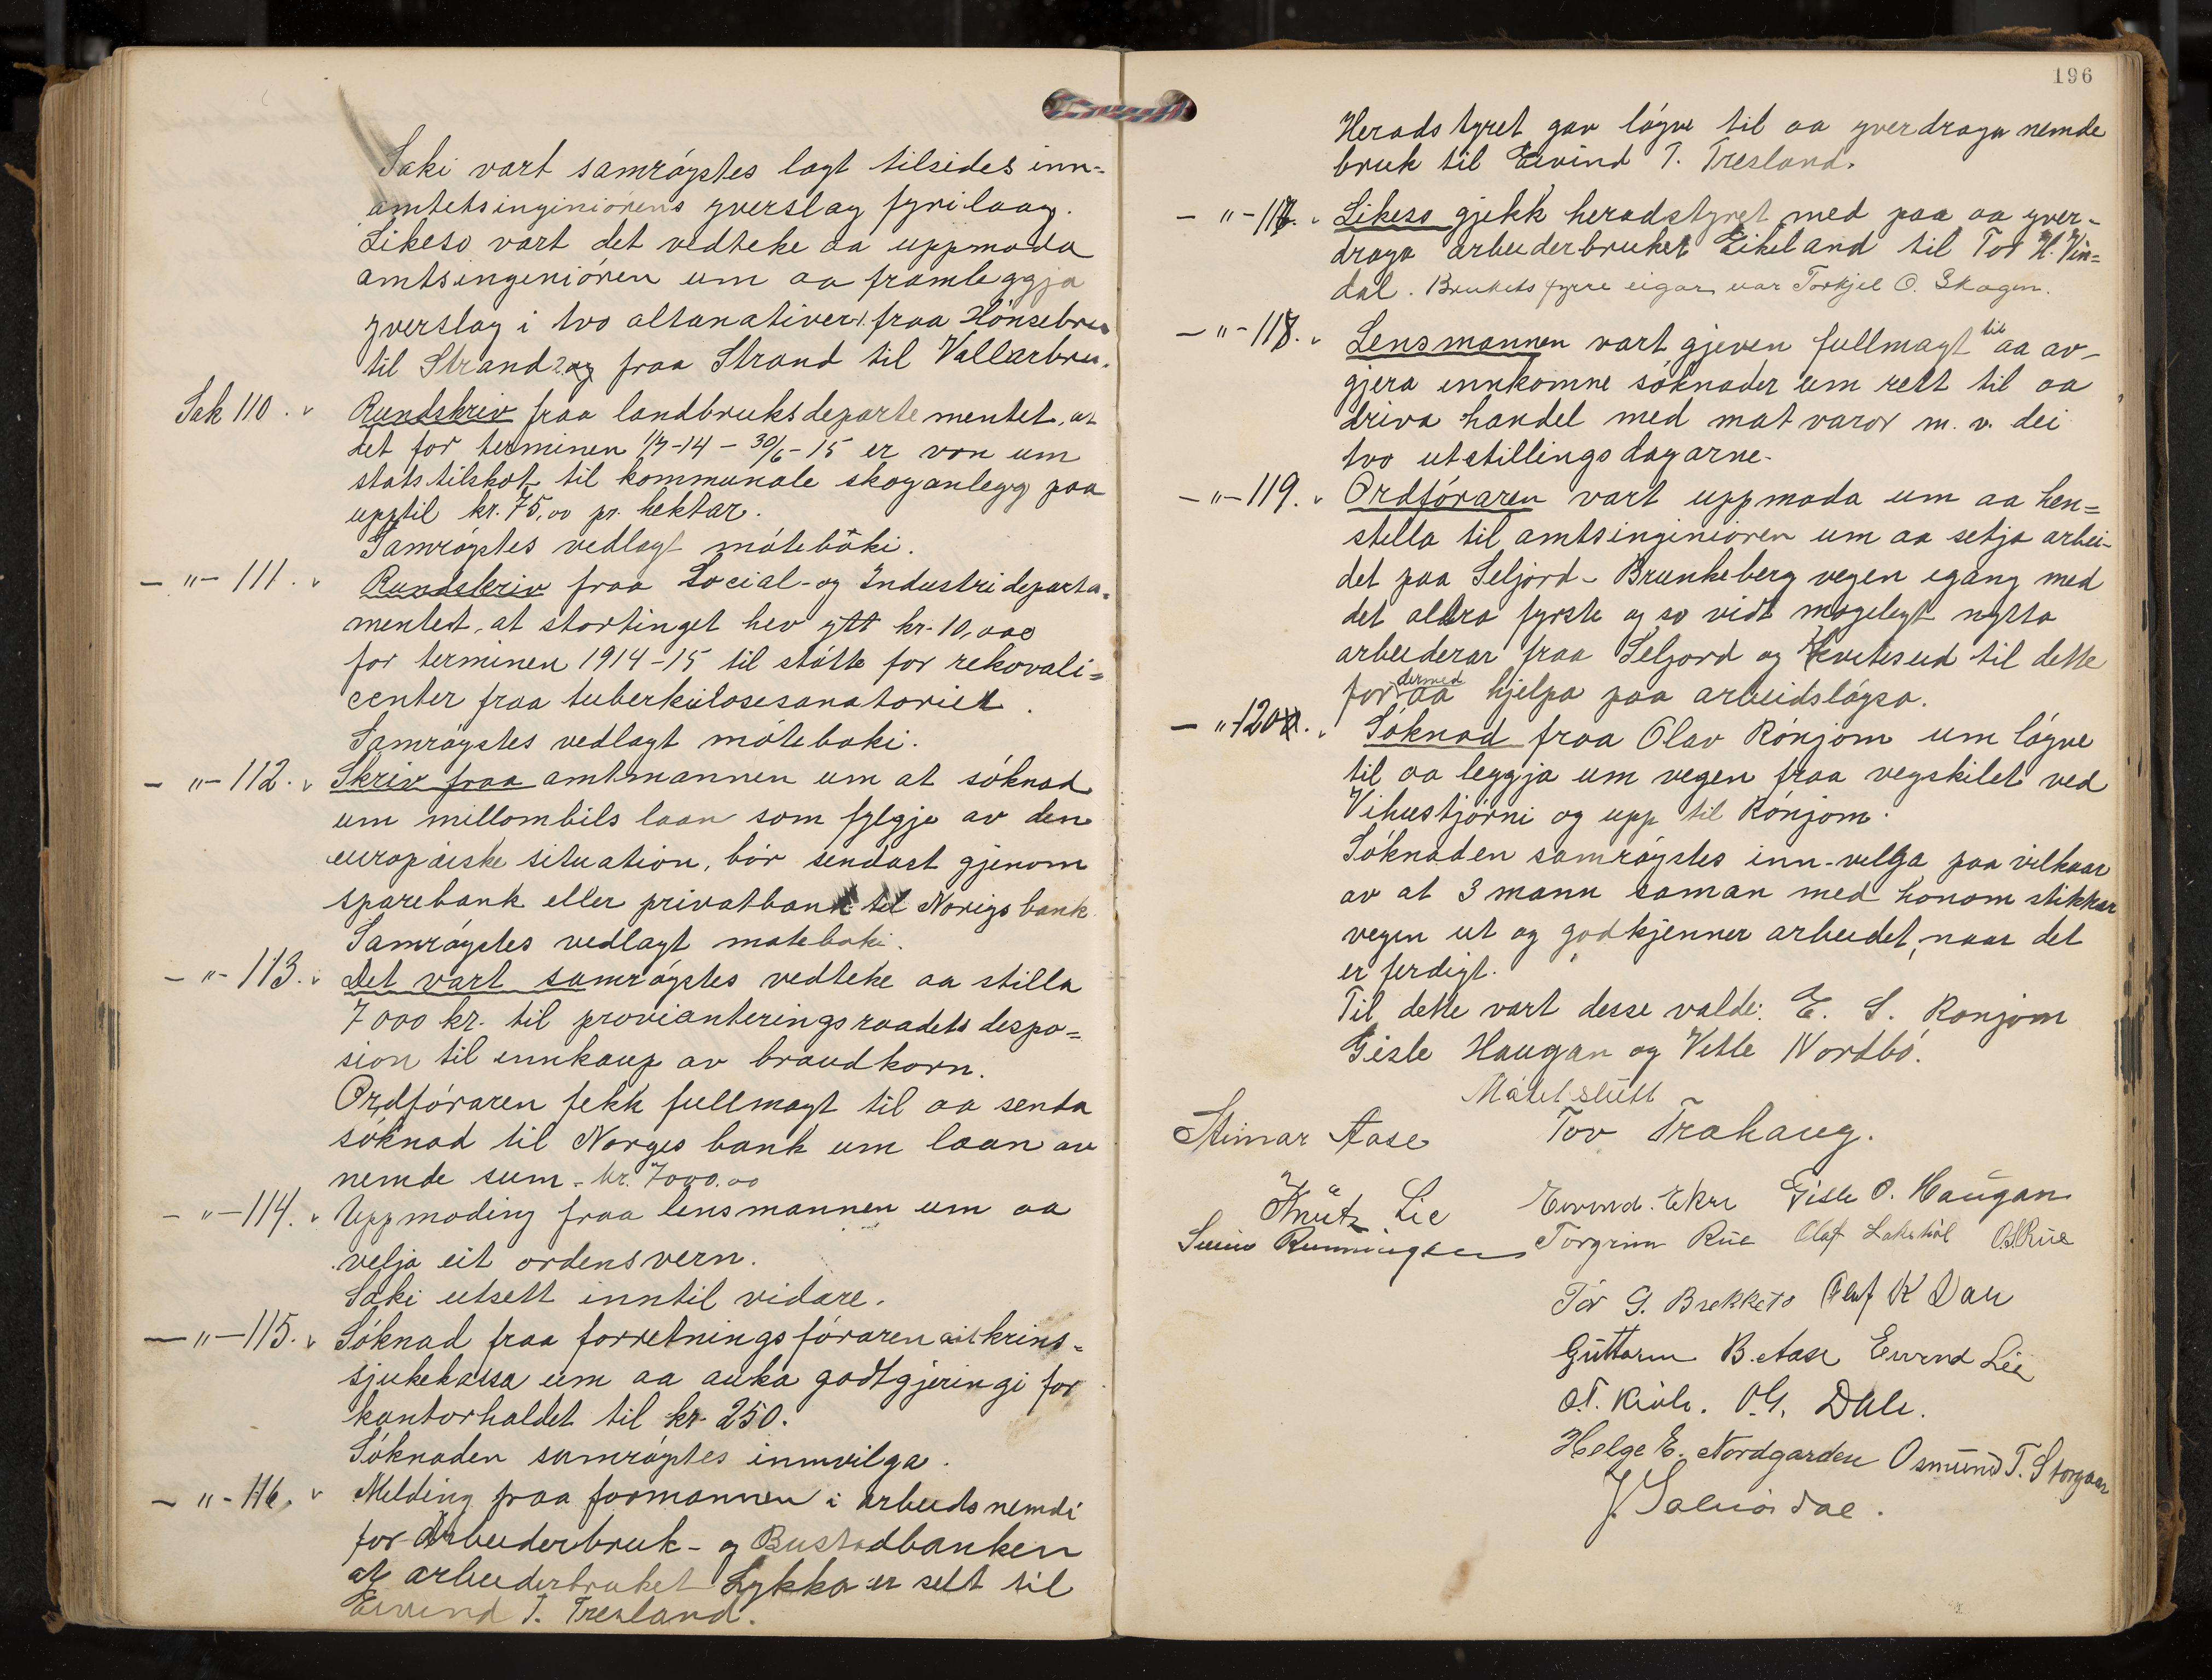 Saki vart samröystes lagt tilsides inn-
amtetsinginiörens yverslag fyrilaag.
Likeso vart det vedteke aa uppmoda
amtsingeniören um aa framleggja
yverslag i tvo altanativer 1. fraa Hönsebru
til Strand 2. og fraa Strand til Vallarbru.
Sak 110. Rundskriv fraa landbruksdepartementet, at
det for terminen 1/7-14 - 30/6-15 er von um
statstilskot til kommunale skoganlegg paa
upptil kr. 75,00 pr. hektar.
Samröystes vedlagt möteböki.
- " - 111. Rundskriv fraa Social- og Industrideparta-
mentet, at stortinget hev ytt kr. 10,000
for terminen 1914-15 til stötte for rekovali-
center fraa tuberkulosesanatoriet.
Samröystes vedlagt möteboki.
- " - 112. Skriv fraa amtmannen um at söknad
um millombils laan som fylgje av den
europäiske situation, bör sendast gjenom
sparebank eller privatbank til Norigs bank
Samröystes vedlagt moteboki.
- " - 113. Det vart samröystes vedteke aa stilla
7000 kr. til provianteringsraadets despo-
sion til innkaup av braudkorn.
Ordföraren fekk fullmagt til aa senda
söknad til Norges bank um laan av
nemde sum - kr. 7000.00
- " - 114. Uppmoding fraa lensmannen um aa
velja eit ordensvern.
Saki utsett inntil vidare.
- " - 115. Söknad fraa forretningsföraren i krins-
sjukekassa um aa auka godtgjeringi for
kontorhaldet til kr. 250.
Söknaden samröystes innvilga.
- " - 116. Melding fraa formannen i arbeidsnemdi
for Arbeiderbruk- og Bustadbanken
at arbeiderbruket Lykkja er selt til
Eivind T. Tresland.
196
Heradstyret gav löyve til aa yverdraga nemde
bruk til Eivind T. Tresland.
- " - 117. Likeso gjekk heradstyret med paa aa yver-
draga arbeiderbruket Eikeland til Tor H. Vin-
dal. Brukets fyrre eigar var Torkjel O. Skogen.
- " - 118. Lensmannen vart gjeven fullmagt til aa av-
gjera innkomne söknader um rett til aa
driva handel med matvaror m. v. dei
tvo utstillingsdagarne.
- " - 119. Ordföraren vart uppmoda um aa hen-
stella til amtsinginiören um aa setja arbei-
det paa Seljord - Brunkeberg vegen igang med
det aldra fyrste og so vidt mogelegt nytta
arbeiderar fraa Seljord og Kviteseid til dette
for dermed aa hjelpa paa arbeidslöysa.
- " - 120. Söknad fraa Olav Rönjom um löyve
til aa leggja um vegen fraa vegskilet ved
Vihustjörni og upp til Rönjom.
Söknaden samröystes inn-vilga paa vilkaar
av at 3 mann saman med honom stikkar
vegen ut og godkjenner arbeidet, naar det
er ferdigt.
Til dette vart desse valde: E. S. Ronjom
Gisle Haugan og Vetle Nordbö.
Mötet slutt
Steinar Aase Tov Trahaug.
Knut Lie Eivind Ekre Gisle O. Haugan
Svein Runningen Torgrim Rue Olaf Lakshöl O.S. Rue
Tor G. Brekke Olaf K Dale
Guttorm B. Aase Eivind Lie
O.T. Kivle. O.G. Dale.
Helge E. Nordgarden Osmund T. Storgaar